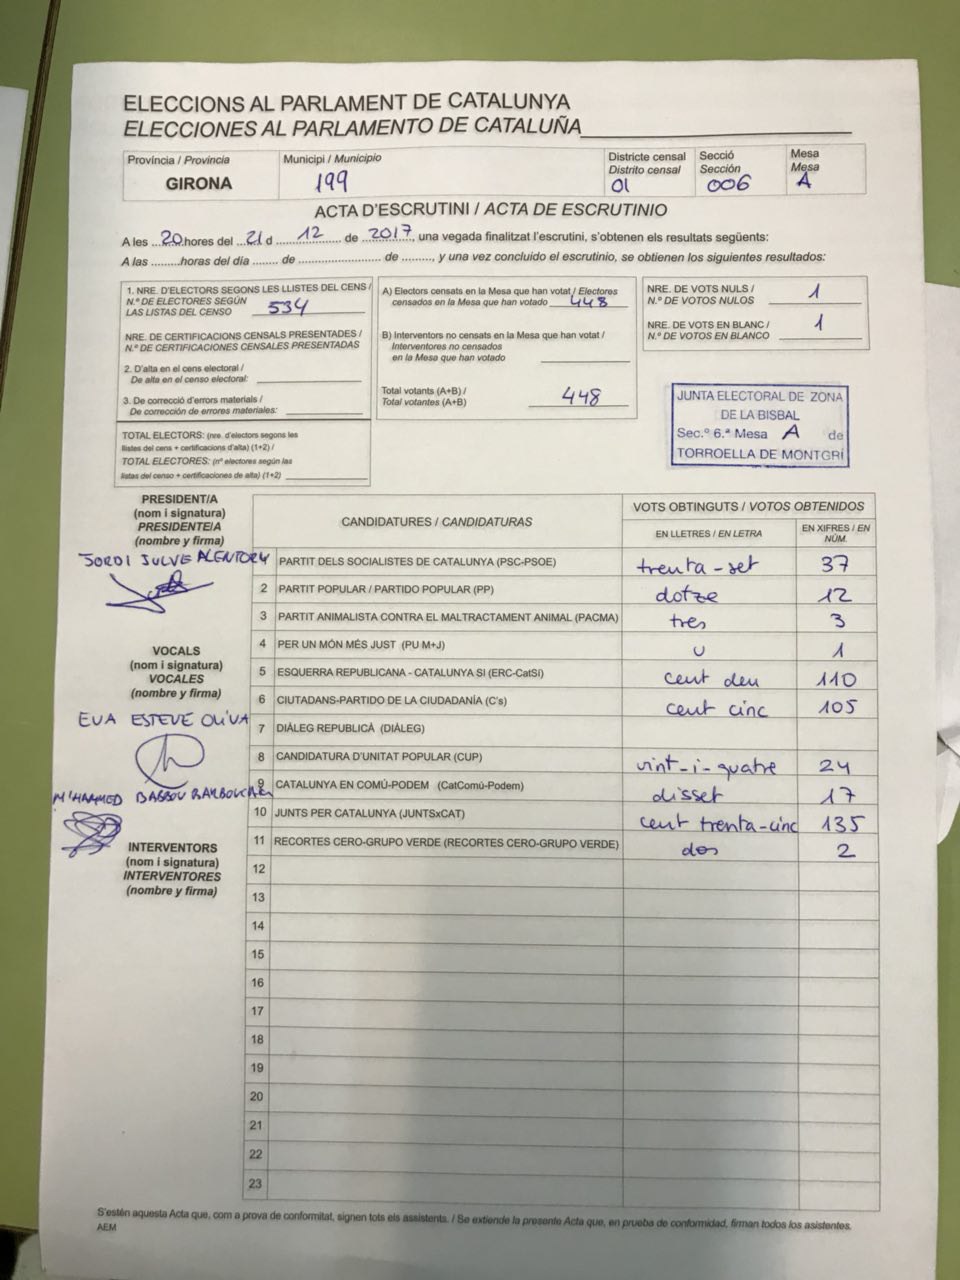 ELECCIONS AL PARLAMENT DE CATALUNYA
ELECCIONES AL PARLAMENTO DE CATALUÑA
Província / Provincia
GIRONA
Municipi / Municipio
199
Districte censal
Distrito censal
01
Secció
Sección
006
Mesa
Mesa
A
ACTA D'ESCRUTINI / ACTA DE ESCRUTINIO
A les ...20.hores del ..21 d ......12...... de ..2017., una vegada finalitzat l'escrutini, s'obtenen els resultats següents:
A las .........horas del día ........ de ........................ de ........., y una vez concluido el escrutinio, se obtienen los siguientes resultados:
1. NRE. D'ELECTORS SEGONS LES LLISTES DEL CENS /
N.º DE ELECTORES SEGÚN
LAS LISTAS DEL CENSO 534
NRE. DE CERTIFICACIONS CENSALS PRESENTADES /
N.º DE CERTIFICACIONES CENSALES PRESENTADAS
2. D'alta en el cens electoral /
De alta en el censo electoral:
3. De correcció d'errors materials /
De corrección de errores materiales:
TOTAL ELECTORS: (nre. d'electors segons les
llistes del cens + certificacions d'alta) (1+2) /
TOTAL ELECTORES: (nº electores según las
listas del censo + certificaciones de alta) (1+2)
A) Electors censats en la Mesa que han votat / Electores
censados en la Mesa que han votado 448
B) Interventors no censats en la Mesa que han votat /
Interventores no censados
en la Mesa que han votado
Total votants (A+B) /
Total votantes (A+B) 448
NRE. DE VOTS NULS /
N.º DE VOTOS NULOS 1
NRE. DE VOTS EN BLANC /
N.º DE VOTOS EN BLANCO 1
JUNTA ELECTORAL DE ZONA
DE LA BISBAL
Sec.º 6.ª Mesa A de
TORROELLA DE MONTGRI
PRESIDENT/A
(nom i signatura)
PRESIDENTE/A
(nombre y firma)
JORDI JULVE ALENTORN
VOCALS
(nom i signatura)
VOCALES
(nombre y firma)
EVA ESTEVE OLIVA
BABBOU
INTERVENTORS
(nom i signatura)
INTERVENTORES
(nombre y firma)
CANDIDATURES / CANDIDATURAS
VOTS OBTINGUTS / VOTOS OBTENIDOS
EN LLETRES / EN LETRA
EN XIFRES / EN NÚM.
1 PARTIT DELS SOCIALISTES DE CATALUNYA (PSC-PSOE) trenta-set 37
2 PARTIT POPULAR / PARTIDO POPULAR (PP) dotze 12
3 PARTIT ANIMALISTA CONTRA EL MALTRACTAMENT ANIMAL (PACMA) tres 3
4 PER UN MÓN MÉS JUST (PU M+J) u 1
5 ESQUERRA REPUBLICANA - CATALUNYA SI (ERC-CatSI) cent deu 110
6 CIUTADANS-PARTIDO DE LA CIUDADANÍA (C's) cent cinc 105
7 DIÀLEG REPUBLICÀ (DIÀLEG)
8 CANDIDATURA D'UNITAT POPULAR (CUP) vint-i-quatre 24
9 CATALUNYA EN COMÚ-PODEM (CatComú-Podem) disset 17
10 JUNTS PER CATALUNYA (JUNTSxCAT) cent trenta-cinc 135
11 RECORTES CERO-GRUPO VERDE (RECORTES CERO-GRUPO VERDE) dos 2
12
13
14
15
16
17
18
19
20
21
22
23
S'estén aquesta Acta que, com a prova de conformitat, signen tots els assistents. / Se extiende la presente Acta que, en prueba de conformidad, firman todos los asistentes.
AEM